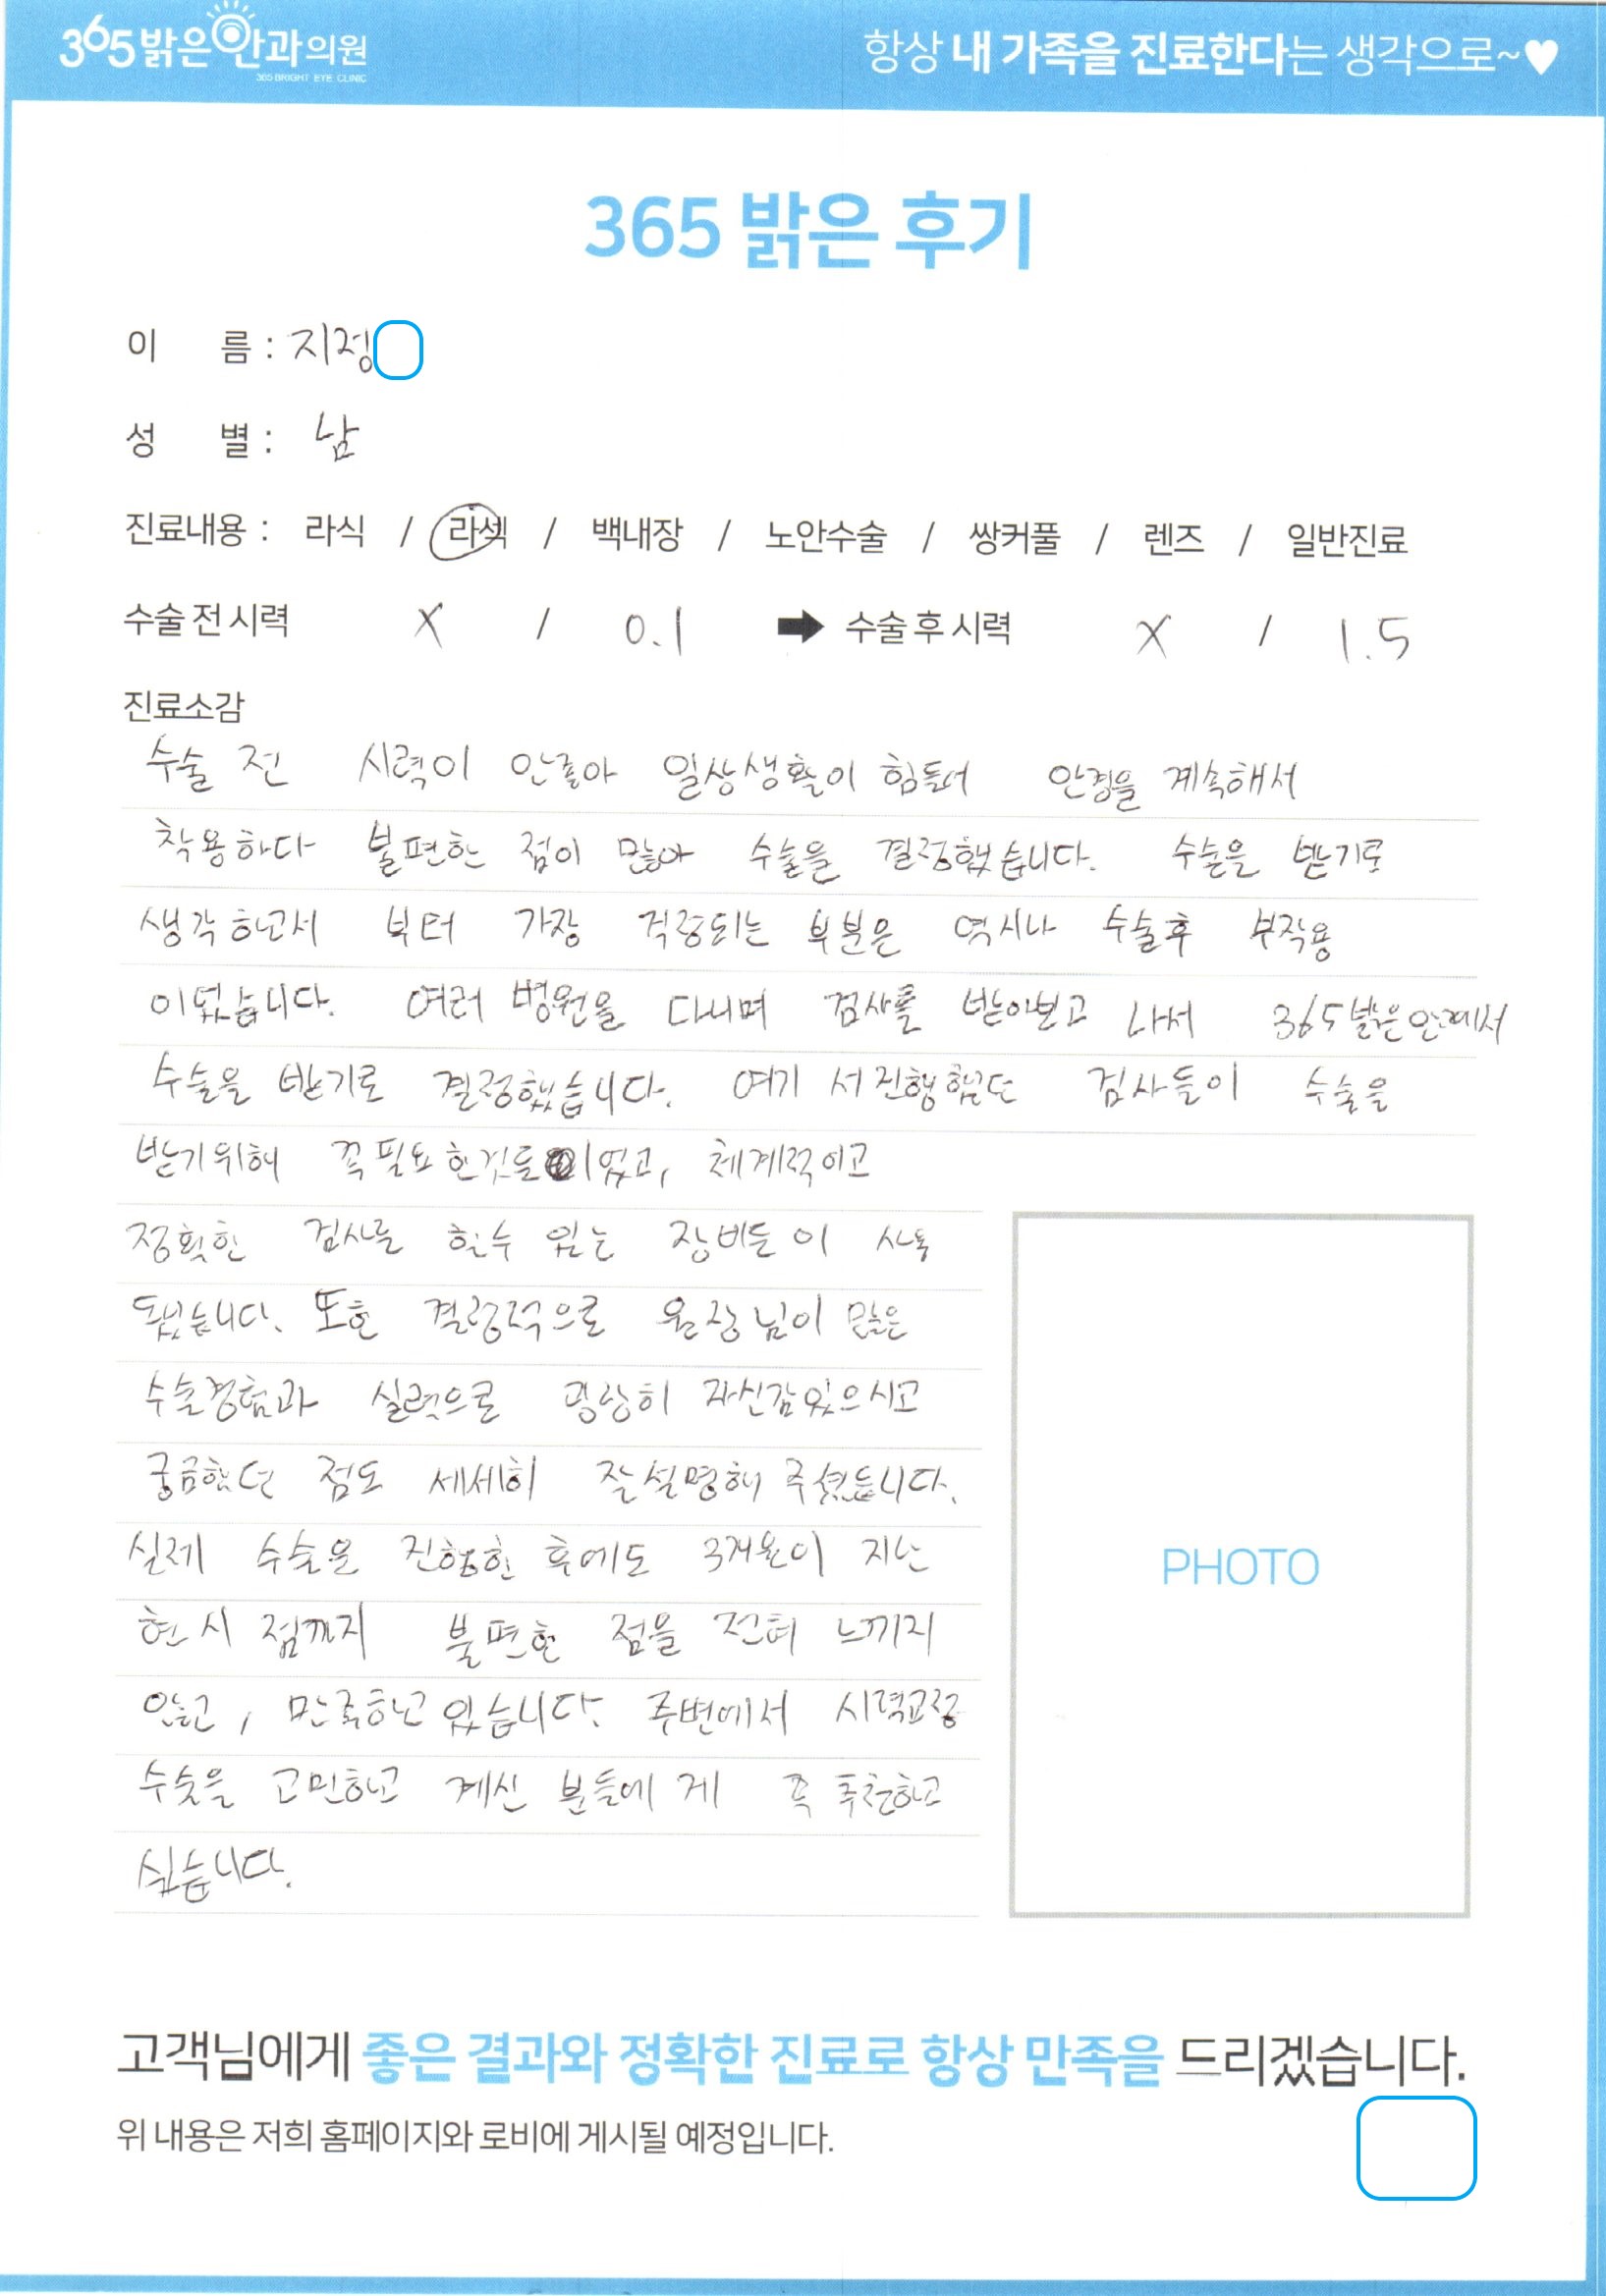 365밝은안과의원
365 BRIGHT EYE CLINIC
항상 내 가족을 진료한다는 생각으로~♥
365 밝은 후기
이 름 : 지정
성 별 : 남
진료내용 : 라식 / 라섹 / 백내장 / 노안수술 / 쌍커풀 / 렌즈 / 일반진료
수술 전 시력 X / 0.1 ➡ 수술 후 시력 X / 1.5
진료소감
수술 전 시력이 안좋아 일상생활이 힘들어 안경을 계속해서
착용하다 불편한 점이 많아 수술을 결정했습니다. 수술을 받기로
생각하고서 부터 가장 걱정되는 부분은 역시나 수술후 부작용
이였습니다. 여러 병원을 다니며 검사를 받아보고 나서 365밝은안과에서
수술을 받기로 결정했습니다. 여기서 진행했던 검사들이 수술을
받기위해 꼭 필요한것들이었고, 체계적이고
정확한 검사를 할수 있는 장비들이 사용
됐습니다. 또한 결정적으로 원장님이 많은
수술경험과 실력으로 굉장히 자신감있으시고
궁금했던 점도 세세히 잘 설명해 주셨습니다.
실제 수술을 진행한 후에도 3개월이 지난
현 시점까지 불편한 점을 전혀 느끼지
않고, 만족하고 있습니다. 주변에서 시력교정
수술을 고민하고 계신 분들에게 꼭 추천하고
싶습니다.
PHOTO
고객님에게 좋은 결과와 정확한 진료로 항상 만족을 드리겠습니다.
위 내용은 저희 홈페이지와 로비에 게시될 예정입니다.